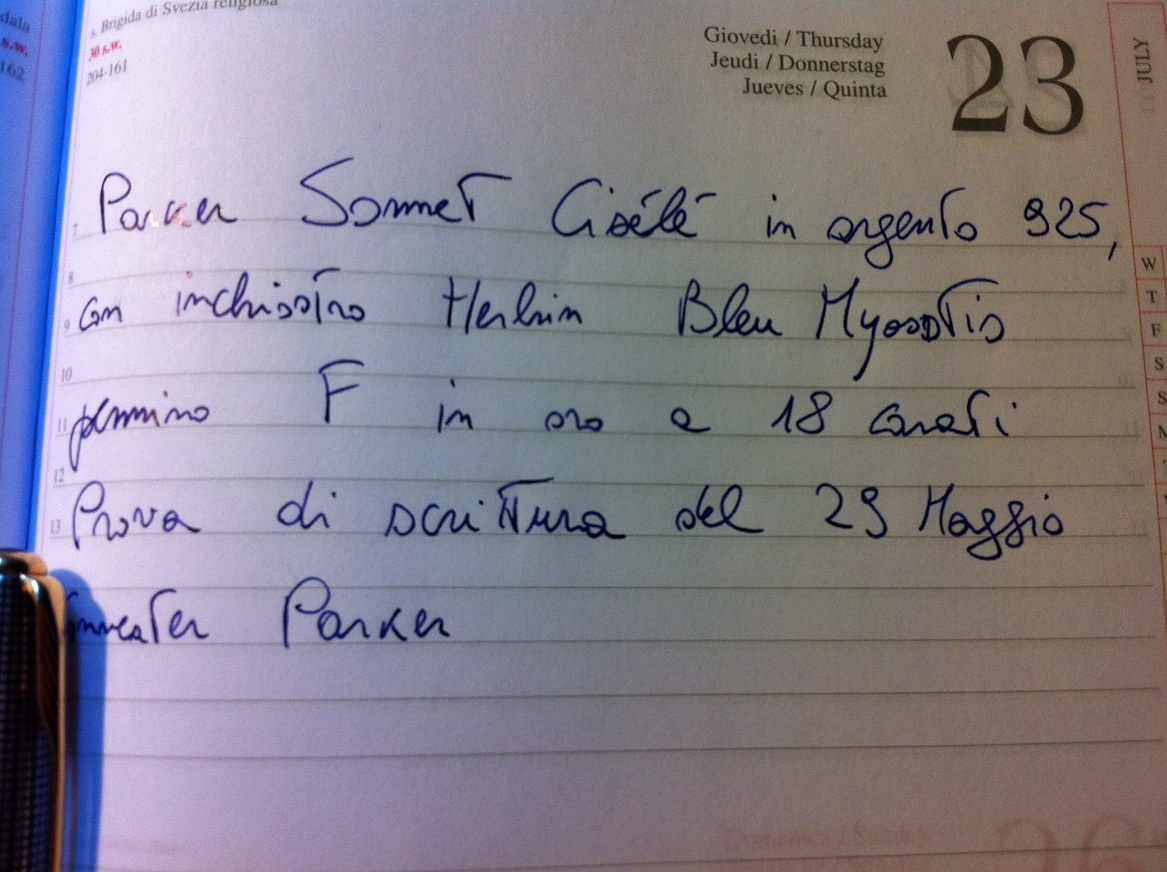 dala
s.w.
162
s. Brigida di Svezia religiosa
30 s.w.
204-161
Giovedi / Thursday
Jeudi / Donnerstag
Jueves / Quinta
23
JULY
7
Parker Sonnet Cisélé in argento 925,
8
9 con inchiostro Herbin Bleu Myosotis
10
11 pennino F in oro a 18 carati
12
13 Prova di scrittura del 29 Maggio
Parker
W
T
F
S
S
M